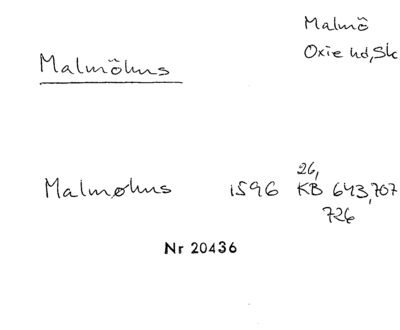 Malmö
Oxie hd, Sk
Malmöhus
Malmøhus 1596 KB 643, 707
26,
726
Nr 20436